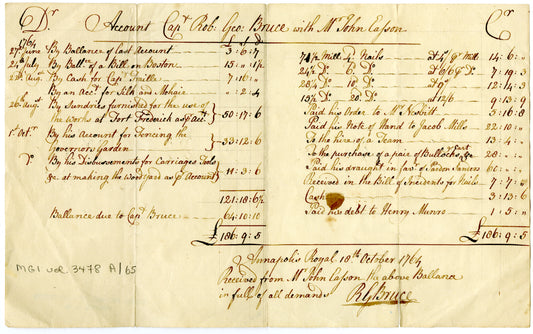 Dr. Account Capt. Rob. Geo: Bruce with Mr. John Easson Cr.
1764 £ S D
27th June By Ballance of last Account 3 : 6 : 7
24th July By Ball. of a Bill on Boston 15 : " : 1½
2th Augt. By Cash for Capt. 7 : 16 : "
By an Acct. for Silk and Mohair " : 2 : 4
26th Augt. By Sundries furnished for the use of
the Works at Fort Frederick as pr Acct. } 50 : 17 : 6
1st Octr. By his Account for Fencing the
Governors Garden } 33 : 12 : 6
Do. By his Disbursments for Carriages Tools
&c. at making the Wood Yard as pr Account } 11 : 3 : 6
121 : 18 : 6½
Ballance due to Capt. Bruce 64 : 10 : 10
£ 186 : 9 : 5
Mill. 4d. Nails at pr Mill 14 : 6 : "
24½ D. 6 D. at 6/6 pr D. 7 : 19 : 3
28¼ D. 10 D. at 9/ 12 : 14 : 3
15½ D. 20 D. at 12/6 9 : 13 : 9
Paid his Order to Mr. Nesbitt 3 : 16 : 8
Paid his Note of Hand to Jacob Mills 22 : 10 : "
To the hire of a Team 13 : 4 : "
To the purchase of a pair of Bullocks Cart &c 28 : " : "
Paid his draught in favr. of Jardon Sanders 60 : " : "
Received in the Bill of Incidents for Nails 7 : 7 : 6
Cash 3 : 13 : 6
Paid his debt to Henry Munro 1 : 5 : "
£ 186 : 9 : 5
Annapolis Royal 18th October 1764
Received from Mr. John Easson the above Ballance
in full of all demands RG Bruce
MG1 vol 3478 A/65